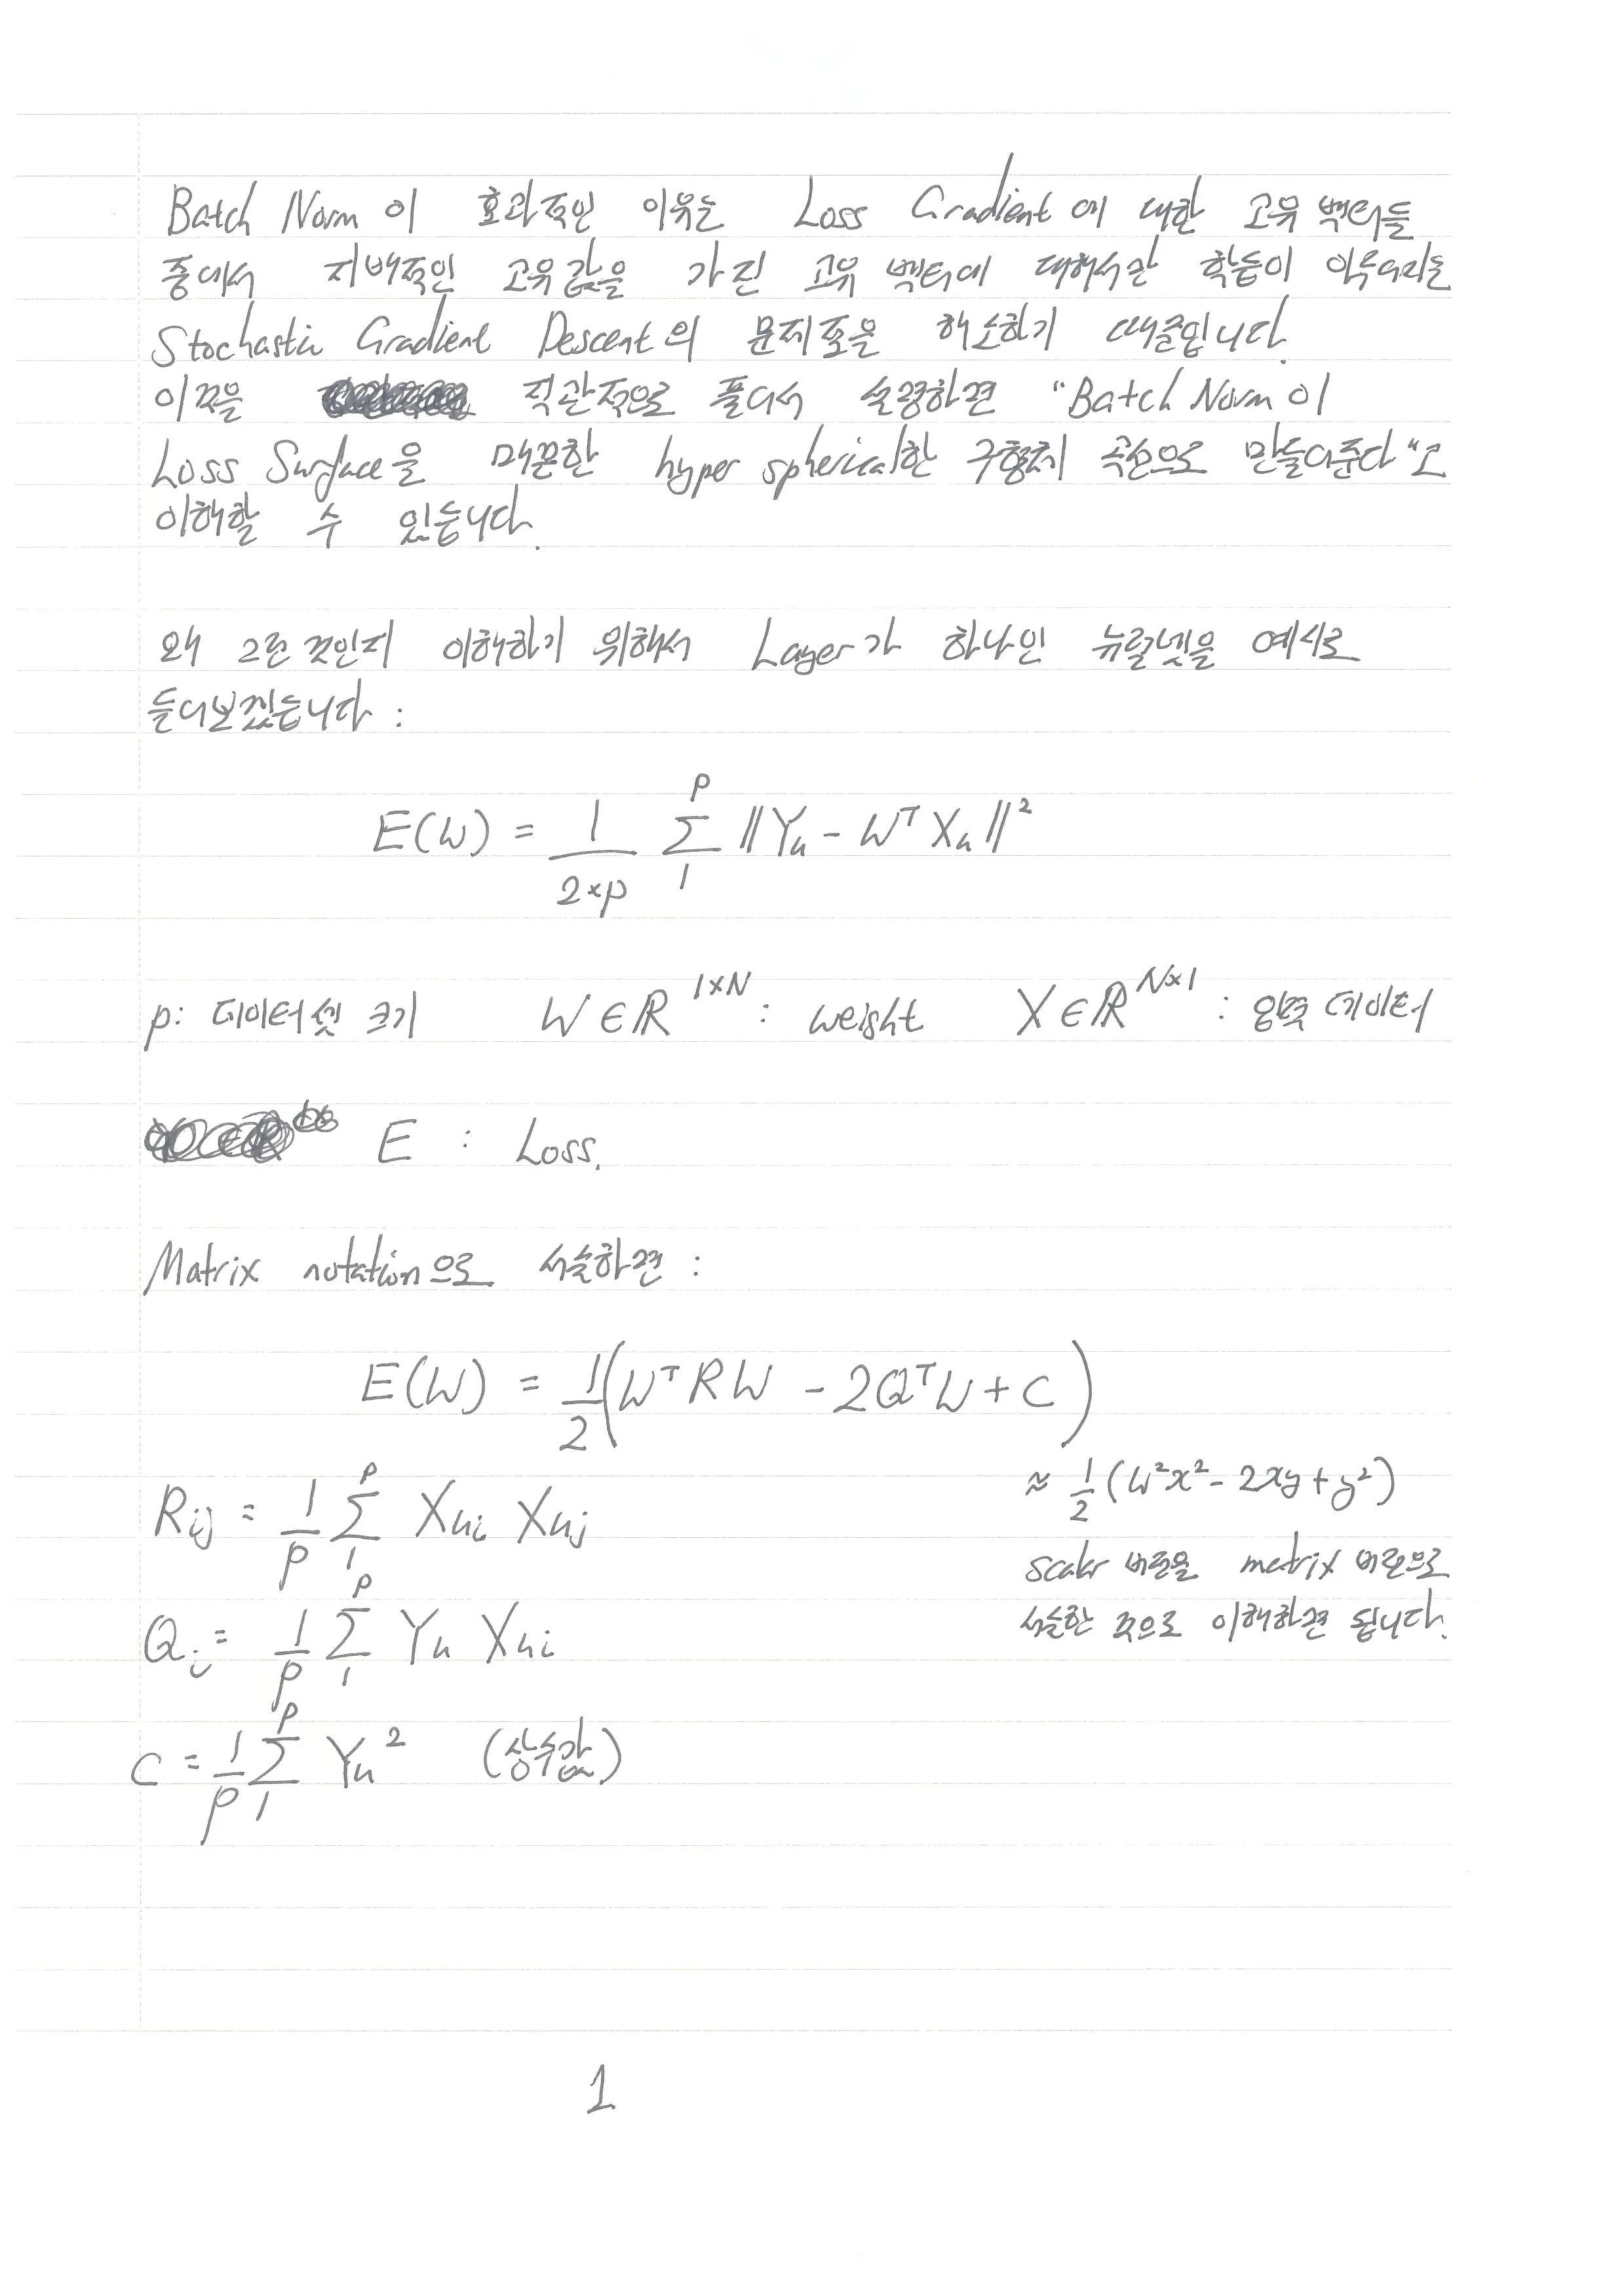 Batch Norm이 효과적인 이유는 Loss Gradient에 대한 고유 벡터들
중에서 지배적인 고유값을 가진 고유 벡터에 대해서만 학습이 이루어지는
Stochastic Gradient Descent의 문제점을 해소하기 때문입니다.
이것을 직관적으로 풀어서 설명하면 "Batch Norm이
Loss Surface을 매끈한 hyper spherical한 구형체 곡선으로 만들어준다"고
이해할 수 있습니다.
왜 그런 것인지 이해하기 위해서 Layer가 하나인 뉴럴넷을 예시로
들어보겠습니다 :
E(W) = 1/(2×p) Σ_1^p ||Yu - W^T Xu||²
p: 데이터셋 크기 W∈ℝ^{1×N} : weight X∈ℝ^{N×1} : 입력 데이터
E : Loss.
Matrix notation으로 서술하면 :
E(W) = 1/2 (W^T RW - 2Q^T W + c)
≈ 1/2 (W²x² - 2xy + y²)
Rij = 1/p Σ_1^p Xui Xuj
scalar 버전을 matrix 버전으로
서술한 것으로 이해하면 됩니다.
Qi = 1/p Σ_1^p Yu Xui
c = 1/p Σ_1^p Yu² (상수값)
1